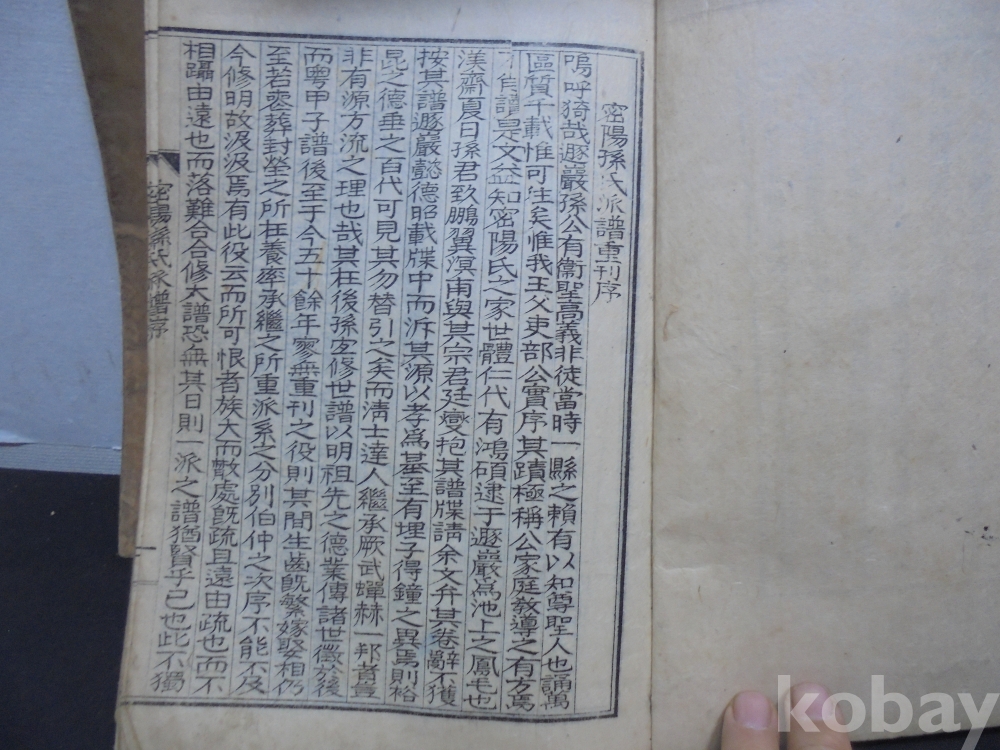 密陽孫氏派譜重刊序
嗚呼猗哉遯巖孫公有衛聖高義非徒當時一縣之賴有以知尊聖人也誦萬
區質千載惟可往矣惟我王父吏部公實序其蹟極稱公家庭敎導之有方焉
讀是文益知密陽氏之家世體仁代有鴻碩逮于遯巖爲池上之鳳毛也
渼齋夏日孫君致鵬翼溟甫與其宗君廷燮抱其譜牒請余文弁其卷辭不獲
按其譜遯巖懿德昭載牒中而泝其源以孝爲基至有埋子得鐘之異焉則裕
昆之德垂之百代可見其勿替引之矣而淸士達人繼承厥武蟬赫一邦者豈
非有源方流之理也哉其在後孫宜修世譜以明祖先之德業傳諸世徵於後
而粤甲子譜後至于今五十餘年寥無重刊之役則其間生齒旣繁嫁娶相仍
至若壺葬封塋之所在養率承繼之所重派系之分別伯仲之次序不能不及
今修明故汲汲焉有此役云而所可恨者族大而散處旣疏且遠由疏也而不
相躡由遠也而落難合合修大譜恐無其日則一派之譜猶賢乎已也此不獨
密陽孫氏派譜序
kobay